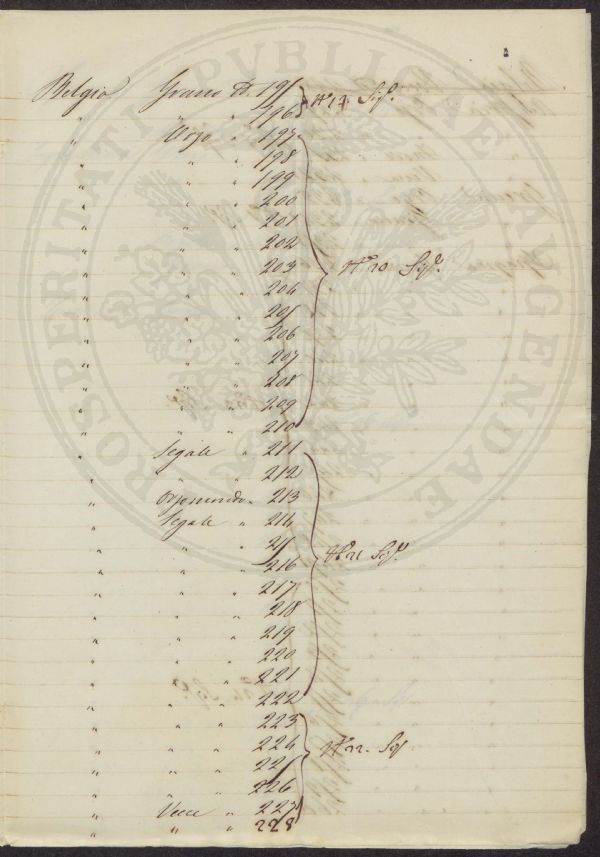 Belgio Grano N. 195
" " " 196 N° 17. Sig.
" Orzo " 197
" " " 198
" " " 199
" " " 200
" " " 201
" " " 202
" " " 203 N° 20 Sig.
" " " 204
" " " 205
" " " 206
" " " 207
" " " 208
" " " 209
" " " 210
" Segale " 211
" " " 212
" Orzomondo " 213
" Segale " 214
" " " 215
" " " 216 N° 21 Sig.
" " " 217
" " " 218
" " " 219
" " " 220
" " " 221
" " " 222
" " " 223
" " " 224 N° 22. Sig.
" " " 225
" " " 226
" Vecce " 227
" " " 228
PROSPERITATI PVBLICAE AVGENDAE